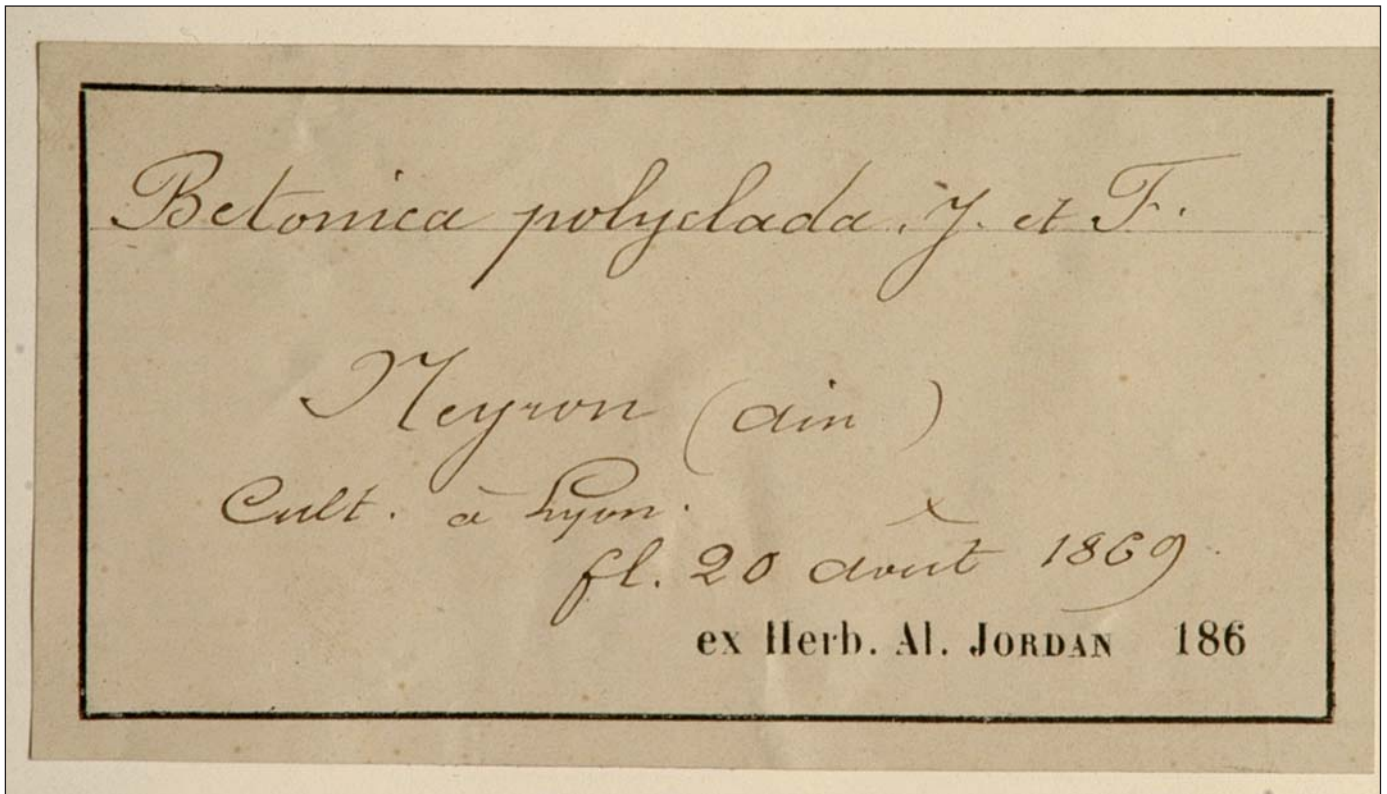 Betonica polyclada. J. et F.
Neyron (ain)
Cult. à Lyon.
fl. 20 août 1869.
ex Herb. Al. JORDAN 186